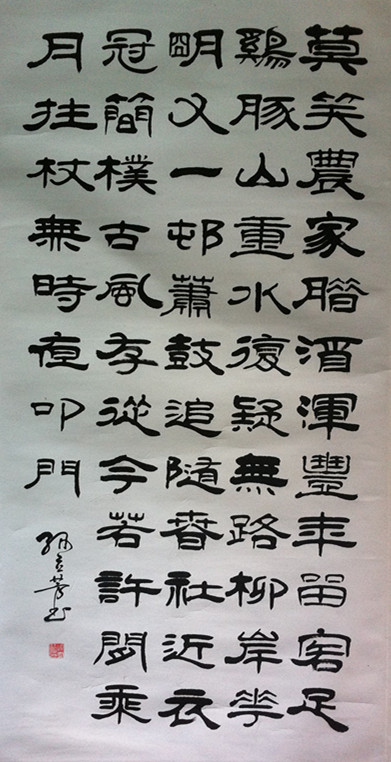 莫笑農家腊酒渾豐年留客足
鷄豚山重水復疑無路柳岸花
明又一邨蕭鼓追隨春社近衣
冠簡樸古風存從今若許閒乘
月拄杖無時夜叩門